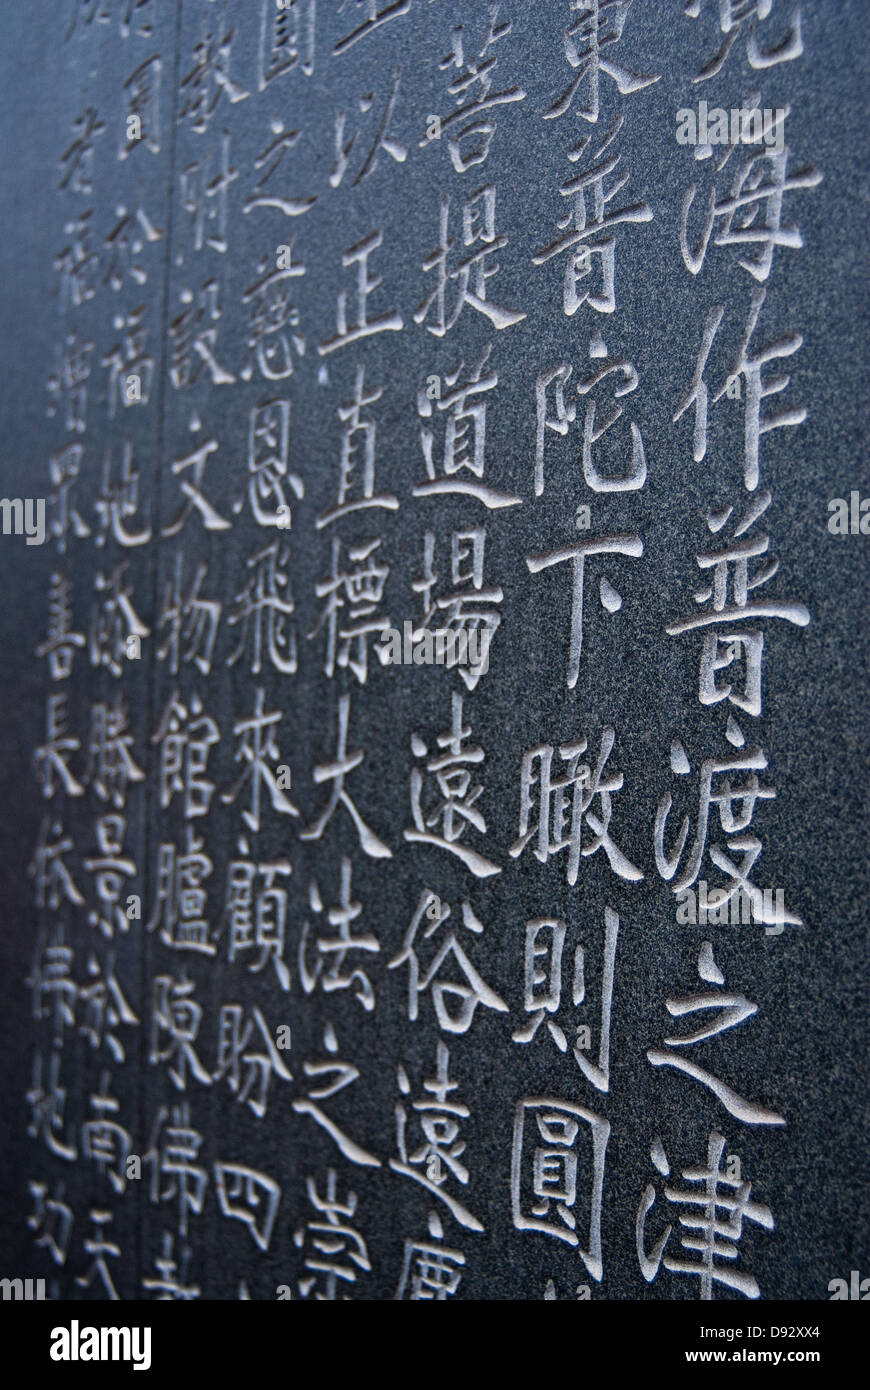 海作普渡之津
東普陀下瞰則圓
菩提道場遠俗遠
以正直標大法之崇
圓之慈恩飛來顧盼四
敬附設文物館臚陳佛
圓於福地添勝景於南天
者福增果善長依佛地功
alamy
Image ID: D92XX4
www.alamy.com